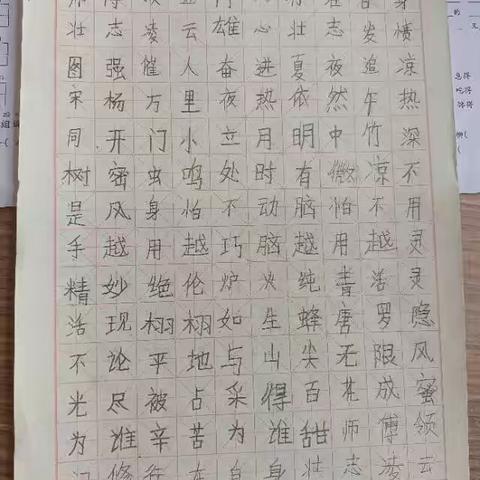 壮志凌云雄心壮志发愤
图强催人奋进夏夜追凉
宋杨万里夜热依然午热
同开门小立月明中竹深
树密虫鸣处时有微凉不
是风身怕不动脑怕不用
手越用越巧脑越用越灵
精妙绝伦炉火纯青活灵
活现栩栩如生蜂唐罗隐
不论平地与山尖无限风
光尽被占采得百花成蜜
为谁辛苦为谁甜师傅领
门修行在自身壮志凌云